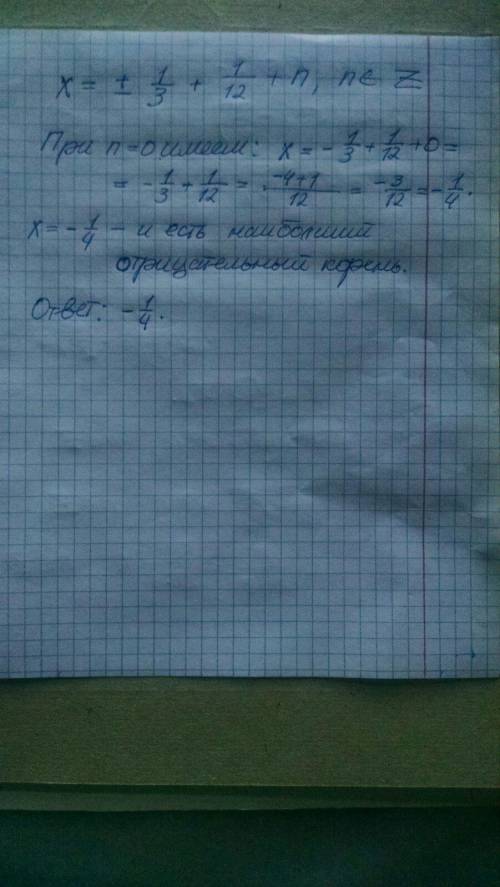 x = ± 1/3 + 1/12 + n, n ∈ Z
При n=0 имеем: x = - 1/3 + 1/12 + 0 =
= - 1/3 + 1/12 = -4+1/12 = -3/12 = - 1/4.
x = - 1/4 - и есть наибольший
отрицательный корень.
Ответ: - 1/4.